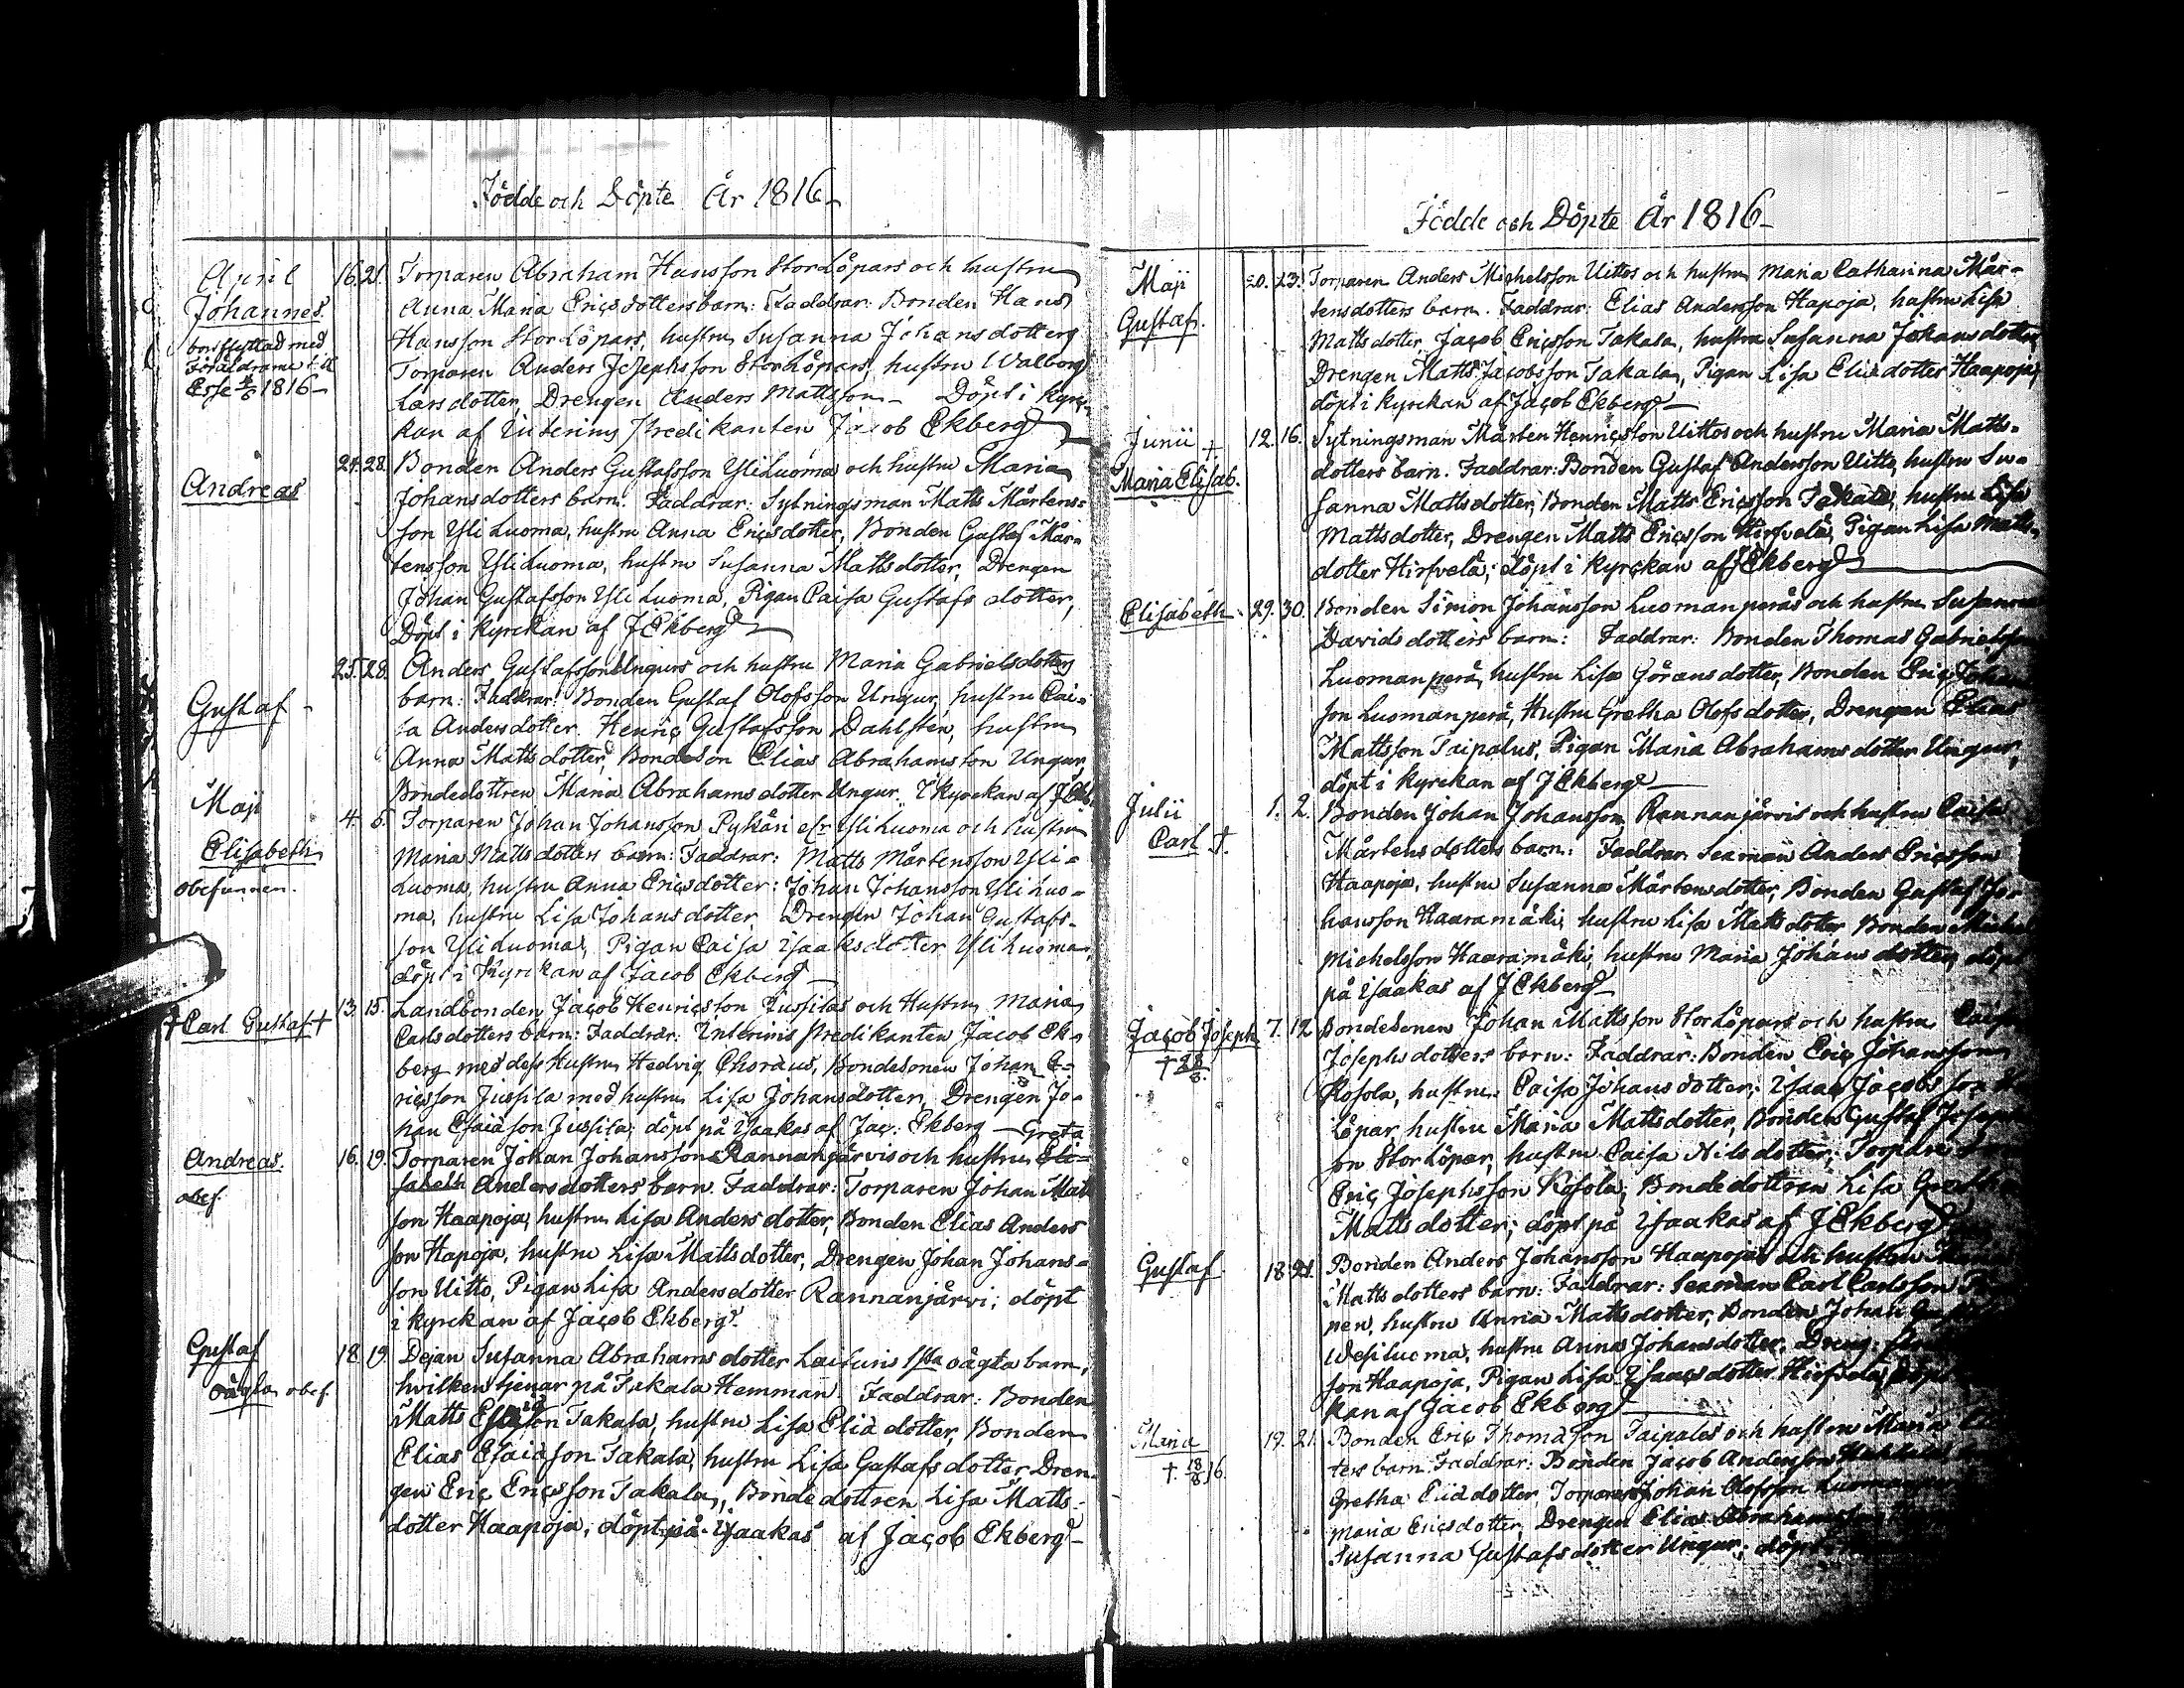 Födde och Döpte År 1816
April 16. 21. Torparen Abraham Hansson StorLöpars och hustru
Johannes. Anna Maria Ericsdotters barn: Faddrar: Bonden Hans
bortflyttad med Hansson StorLöpars, hustru Susanna Johansdotter
Föräldrarne till Torparen Anders Josephsson StorLöpars, hustru Walborg
Esse 1816 Larsdotter, Drengen Anders Mattsson – Döpt i kyrc-
kan af Interims Predikanten Jacob Ekberg
24. 28. Bonden Anders Gustafsson YliLuoma och hustru Maria
Andreas Johansdotters barn. Faddrar: Sytningsman Matts Mårtens-
son YliLuoma, hustru Anna Ericsdotter, Bonden Gustaf Mår-
tensson YliLuoma, hustru Susanna Mattsdotter, Drengen
Johan Gustafsson YliLuoma, Pigan Caisa Gustafsdotter,
Döpt i kyrckan af J Ekberg
25. 28. Anders Gustafsson Ungurs och hustru Maria Gabrielsdotters
Gustaf barn: Faddrar: Bonden Gustaf Olofsson Ungur, hustru Cai-
sa Andersdotter. Henric Gustafsson Dahlsten, hustru
Anna Mattsdotter, BondeSon Elias Abrahamsson Ungur,
Bondedottren Maria Abrahamsdotter Ungur. I kyrckan af J Ekb.
Maji 4. 5. Torparen Johan Johansson Pykäri elr YliLuoma och hustru
Elisabeth Maria Mattsdotters barn: Faddrar: Matts Mårtensson Yli-
obefunnen. Luoma, hustru Anna Ericsdotter: Johan Johansson YliLuo-
ma, hustru Lisa Johansdotter, Drengen Johan Gustafs-
son YliLuoma, Pigan Caisa Isaaksdotter YliLuoma,
döpt i Kyrckan af Jacob Ekberg
13. 15. Landbonden Jacob Henricsson Jussilas och Hustru Maria
† Carl Gustaf † Carlsdotters barn: Faddrar: Interims Predikanten Jacob Ek-
berg med dess Hustru Hedvig Choræus, BondeSonen Johan E-
ricsson Jussila med hustru Lisa Johansdotter, Drengen Jo-
han Esaiasson Jussila; döpt på Isaakas af Jac: Ekberg – Greta
Andreas. 16. 19. Torparen Johan Johansson Rannanjärvis och hustru Eli-
obef. sabeth Andersdotters barn. Faddrar: Torparen Johan Matts
son Haapoja, hustru Lisa Andersdotter, Bonden Elias Anders
son Hapoja, hustru Lisa Mattsdotter, Drengen Johan Johans-
son Uitto, Pigan Lisa Andersdotter Rannanjärvi; döpt
i kyrckan af Jacob Ekberg.
Gustaf 18. 19. Dejan Susanna Abrahamsdotter Laituris 1sta oägta barn,
oägta obef. hvilken tjenar på Takala Hemman. Faddrar: Bonden
Matts Takala, hustru Lisa Eliædotter, Bonden
Elias Esaiæson Takala, hustru Lisa Gustafsdotter, Dren-
gen Eric Ericsson Takala, Bondedottren Lisa Matts-
dotter Haapoja; döpt på Isaakas af Jacob Ekberg
Födde och Döpte År 1816
Maji 20. 23. Torparen Anders Michelsson Uittos och hustru Maria Catharina Mår-
Gustaf. tensdotters barn. Faddrar: Elias Andersson Hapoja, hustru Lisa
Mattsdotter, Jacob Ericsson Takala, hustru Susanna Johansdotter
Drengen Matts Jacobsson Takala, Pigan Lisa Eliædotter Haapoja,
döpt i kyrckan af Jacob Ekberg
Junii † 12. 16. Sytningsman Mårten Henricsson Uittos och hustru Maria Matts-
Maria Elisab. dotters barn. Faddrar: Bonden Gustaf Andersson Uitto, hustru Su-
sanna Mattsdotter, Bonden Matts Ericsson Takala, hustru Lisa
Mattsdotter, Drengen Matts Ericsson Hirfvelä, Pigan Lisa Matts-
dotter Hirfvelä; döpt i kyrckan af J Ekberg
Elisabeth 29. 30. Bonden Simon Johansson Luomanperäs och hustru Susanna
Davidsdotters barn: Faddrar: Bonden Thomas Gabrielsson
Luomanperä, hustru Lisa Göransdotter, Bonden Eric Johans
son Luomanperä, Hustru Gretha Olofsdotter, Drengen Elias
Mattsson Taipalus, Pigan Maria Abrahamsdotter Ungur,
döpt i kyrckan af J Ekberg
Julii 1. 2. Bonden Johan Johansson Rannanjärvis och hustru Caisa
Carl †. Mårtensdotters barn: Faddrar: Seaman Anders Ericsson
Haapoja, hustru Susanna Mårtensdotter, Bonden Gustaf Jo-
hansson Haaramäki, hustru Lisa Mattsdotter, Bonden Michel
Michelsson Haaramäki, hustru Maria Johansdotter, döpt
på Isaakas af J Ekberg
Jacob Joseph 7. 12. BondeSonen Johan Mattsson StorLöpars och hustru Caisa
† 28/8. Josephsdotters barn: Faddrar: Bonden Eric Johansson
Kosola, hustru Caisa Johansdotter; Isaac Jacobsson
Löpar, hustru Maria Mattsdotter, Bonden Gustaf Josephs
son StorLöpar, hustru Caisa Nilsdotter,
Eric Josephsson Kosola, Bondedottren Lisa
Mattsdotter; döpt på Isaakas af J Ekberg
Gustaf. 18. 21. Bonden Anders Johansson Haapojas och hustru
Mattsdotters barn: Faddrar: Seaman Carl Carlsson
pen, hustru Anna Mattsdotter, Bonden Johan
Wesiluoma, hustru Anna Johansdotter, Dreng:
son Haapoja, Pigan Lisa Isaacsdotter Hirfvelä, Döpt
kan af Jacob Ekberg
Maria 19. 21. Bonden Eric Thomasson Taipales och hustru Maria
† 18/8 16. ters barn. Faddrar: Bonden Jacob Andersson
Gretha Eliædotter, Torparen Johan Olofsson
Maria Ericsdotter, Drengen Elias Abrahamsson
Susanna Gustafsdotter Ungur; döpt